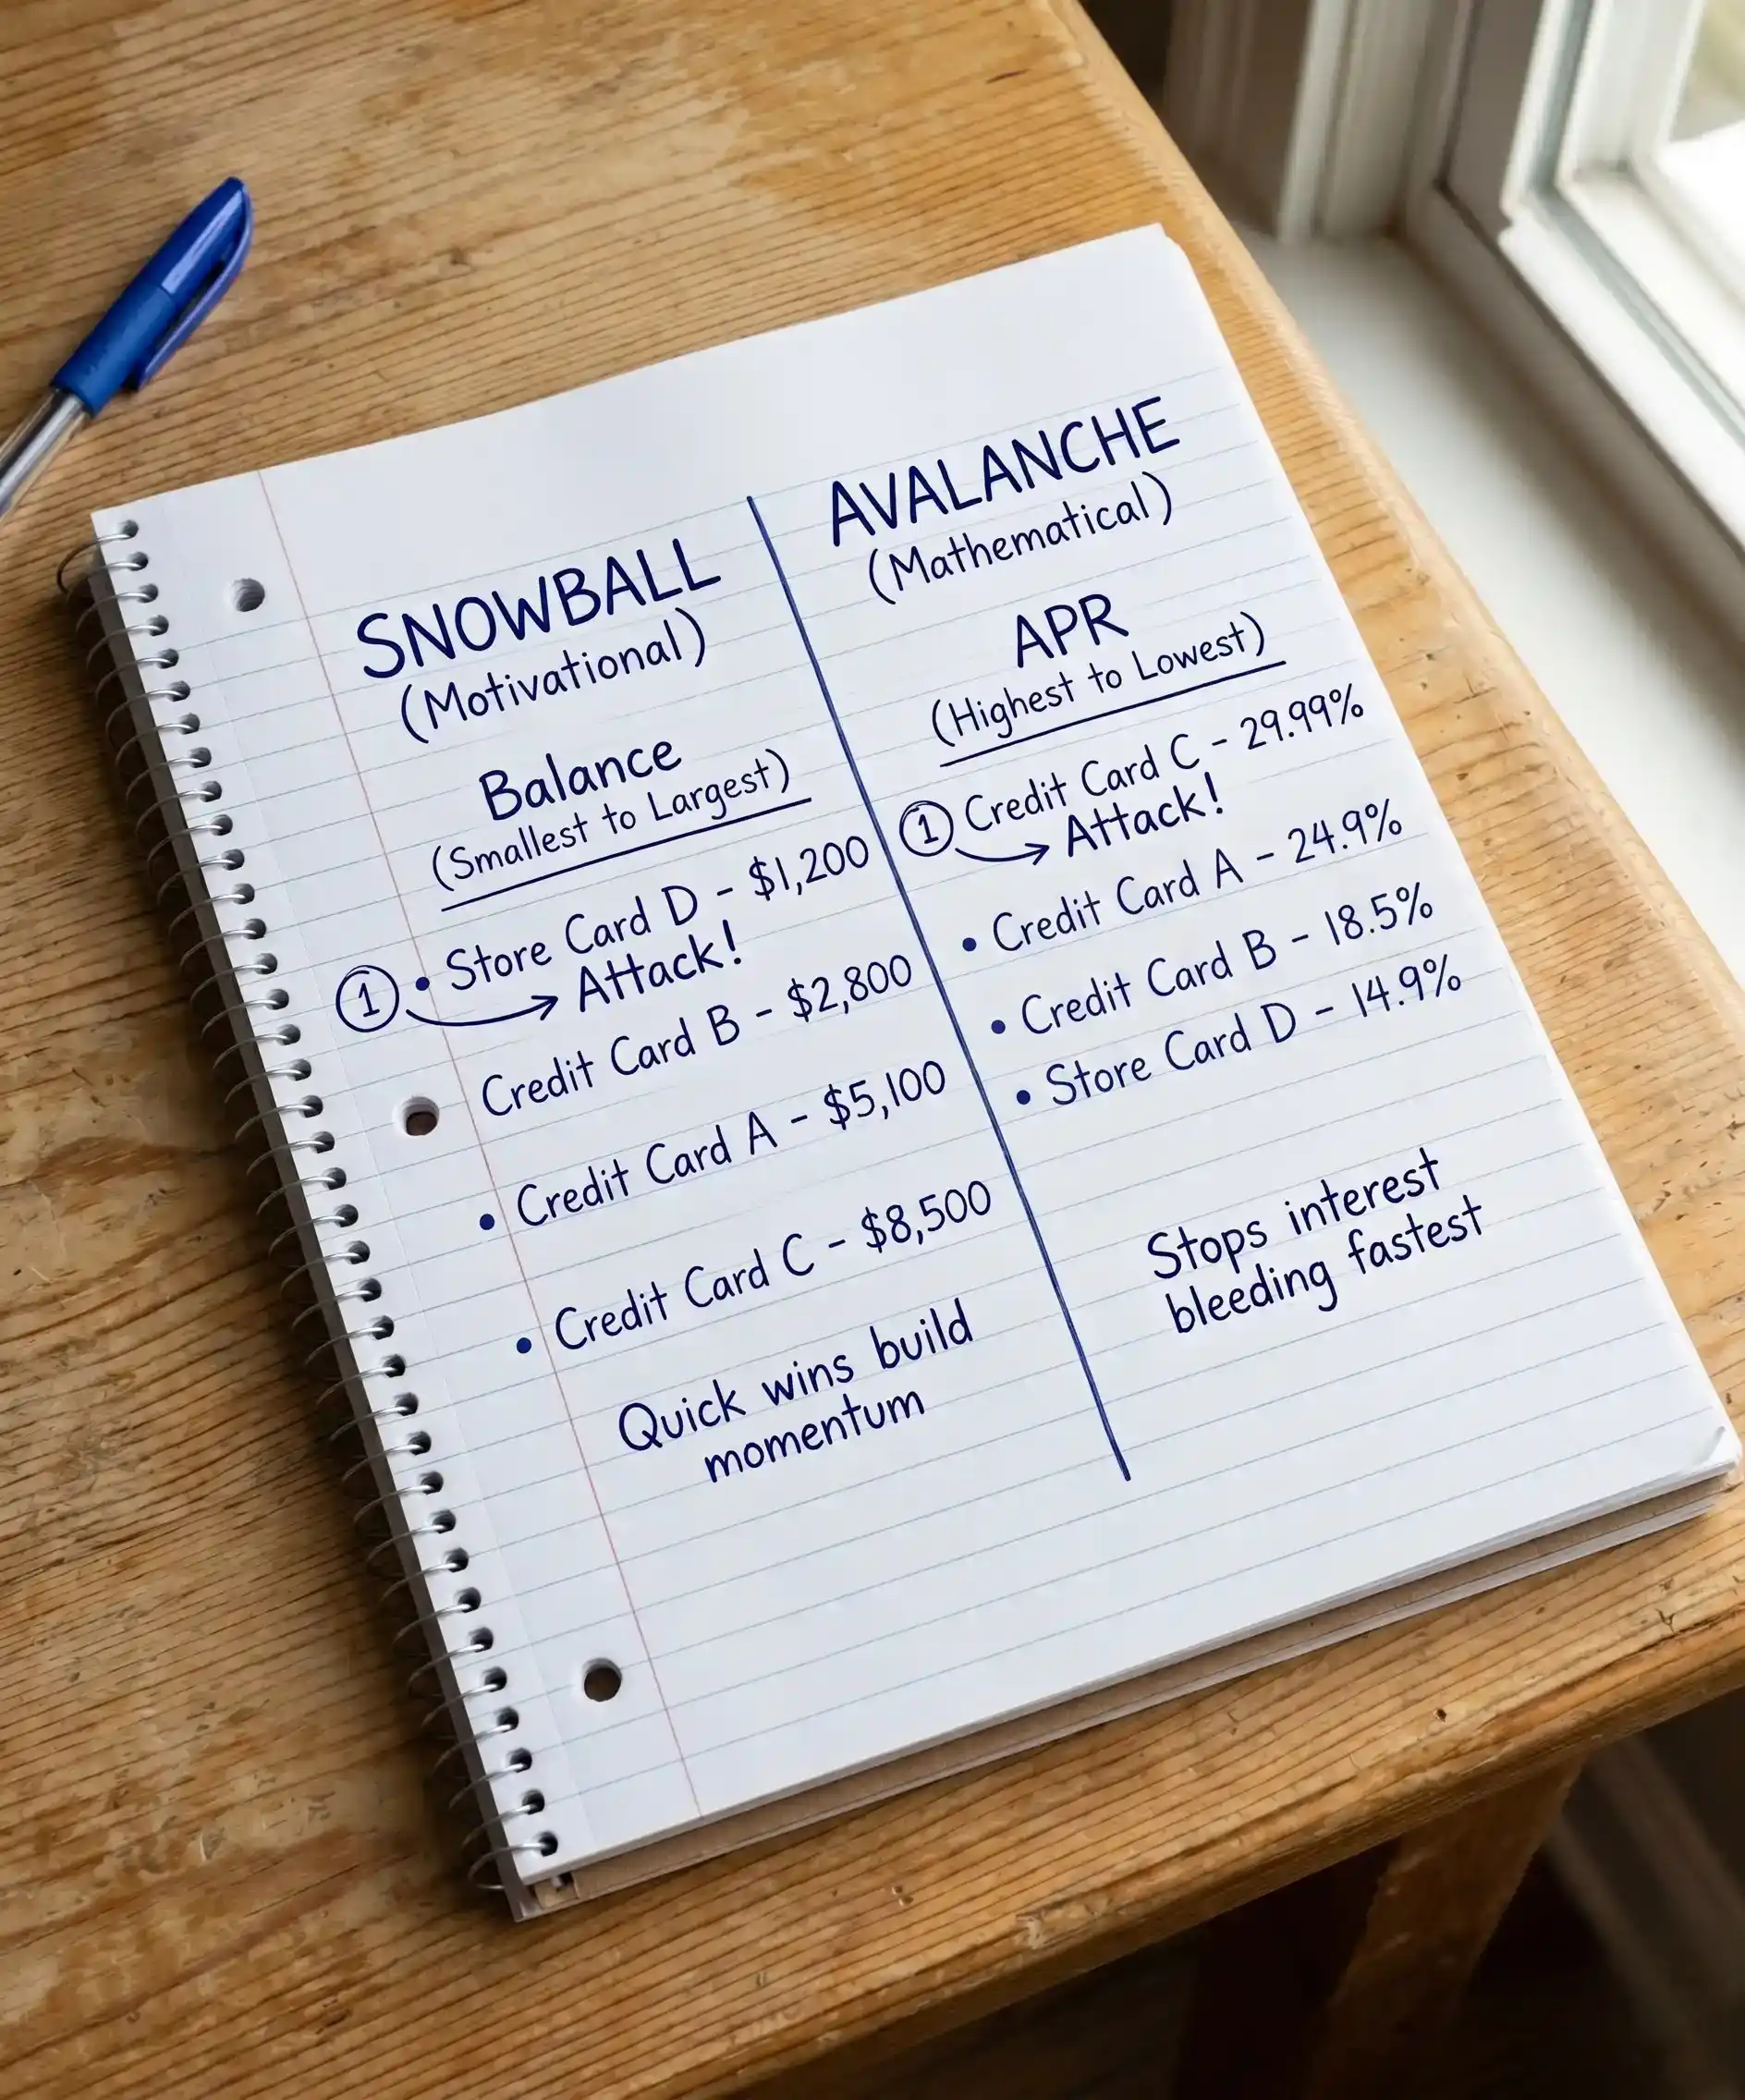 SNOWBALL
(Motivational)
Balance
(Smallest to Largest)
① • Store Card D - $1,200
→ Attack!
Credit Card B - $2,800
• Credit Card A - $5,100
• Credit Card C - $8,500
Quick wins build
momentum
AVALANCHE
(Mathematical)
APR
(Highest to Lowest)
① Credit Card C - 29.99%
→ Attack!
• Credit Card A - 24.9%
• Credit Card B - 18.5%
• Store Card D - 14.9%
Stops interest
bleeding fastest